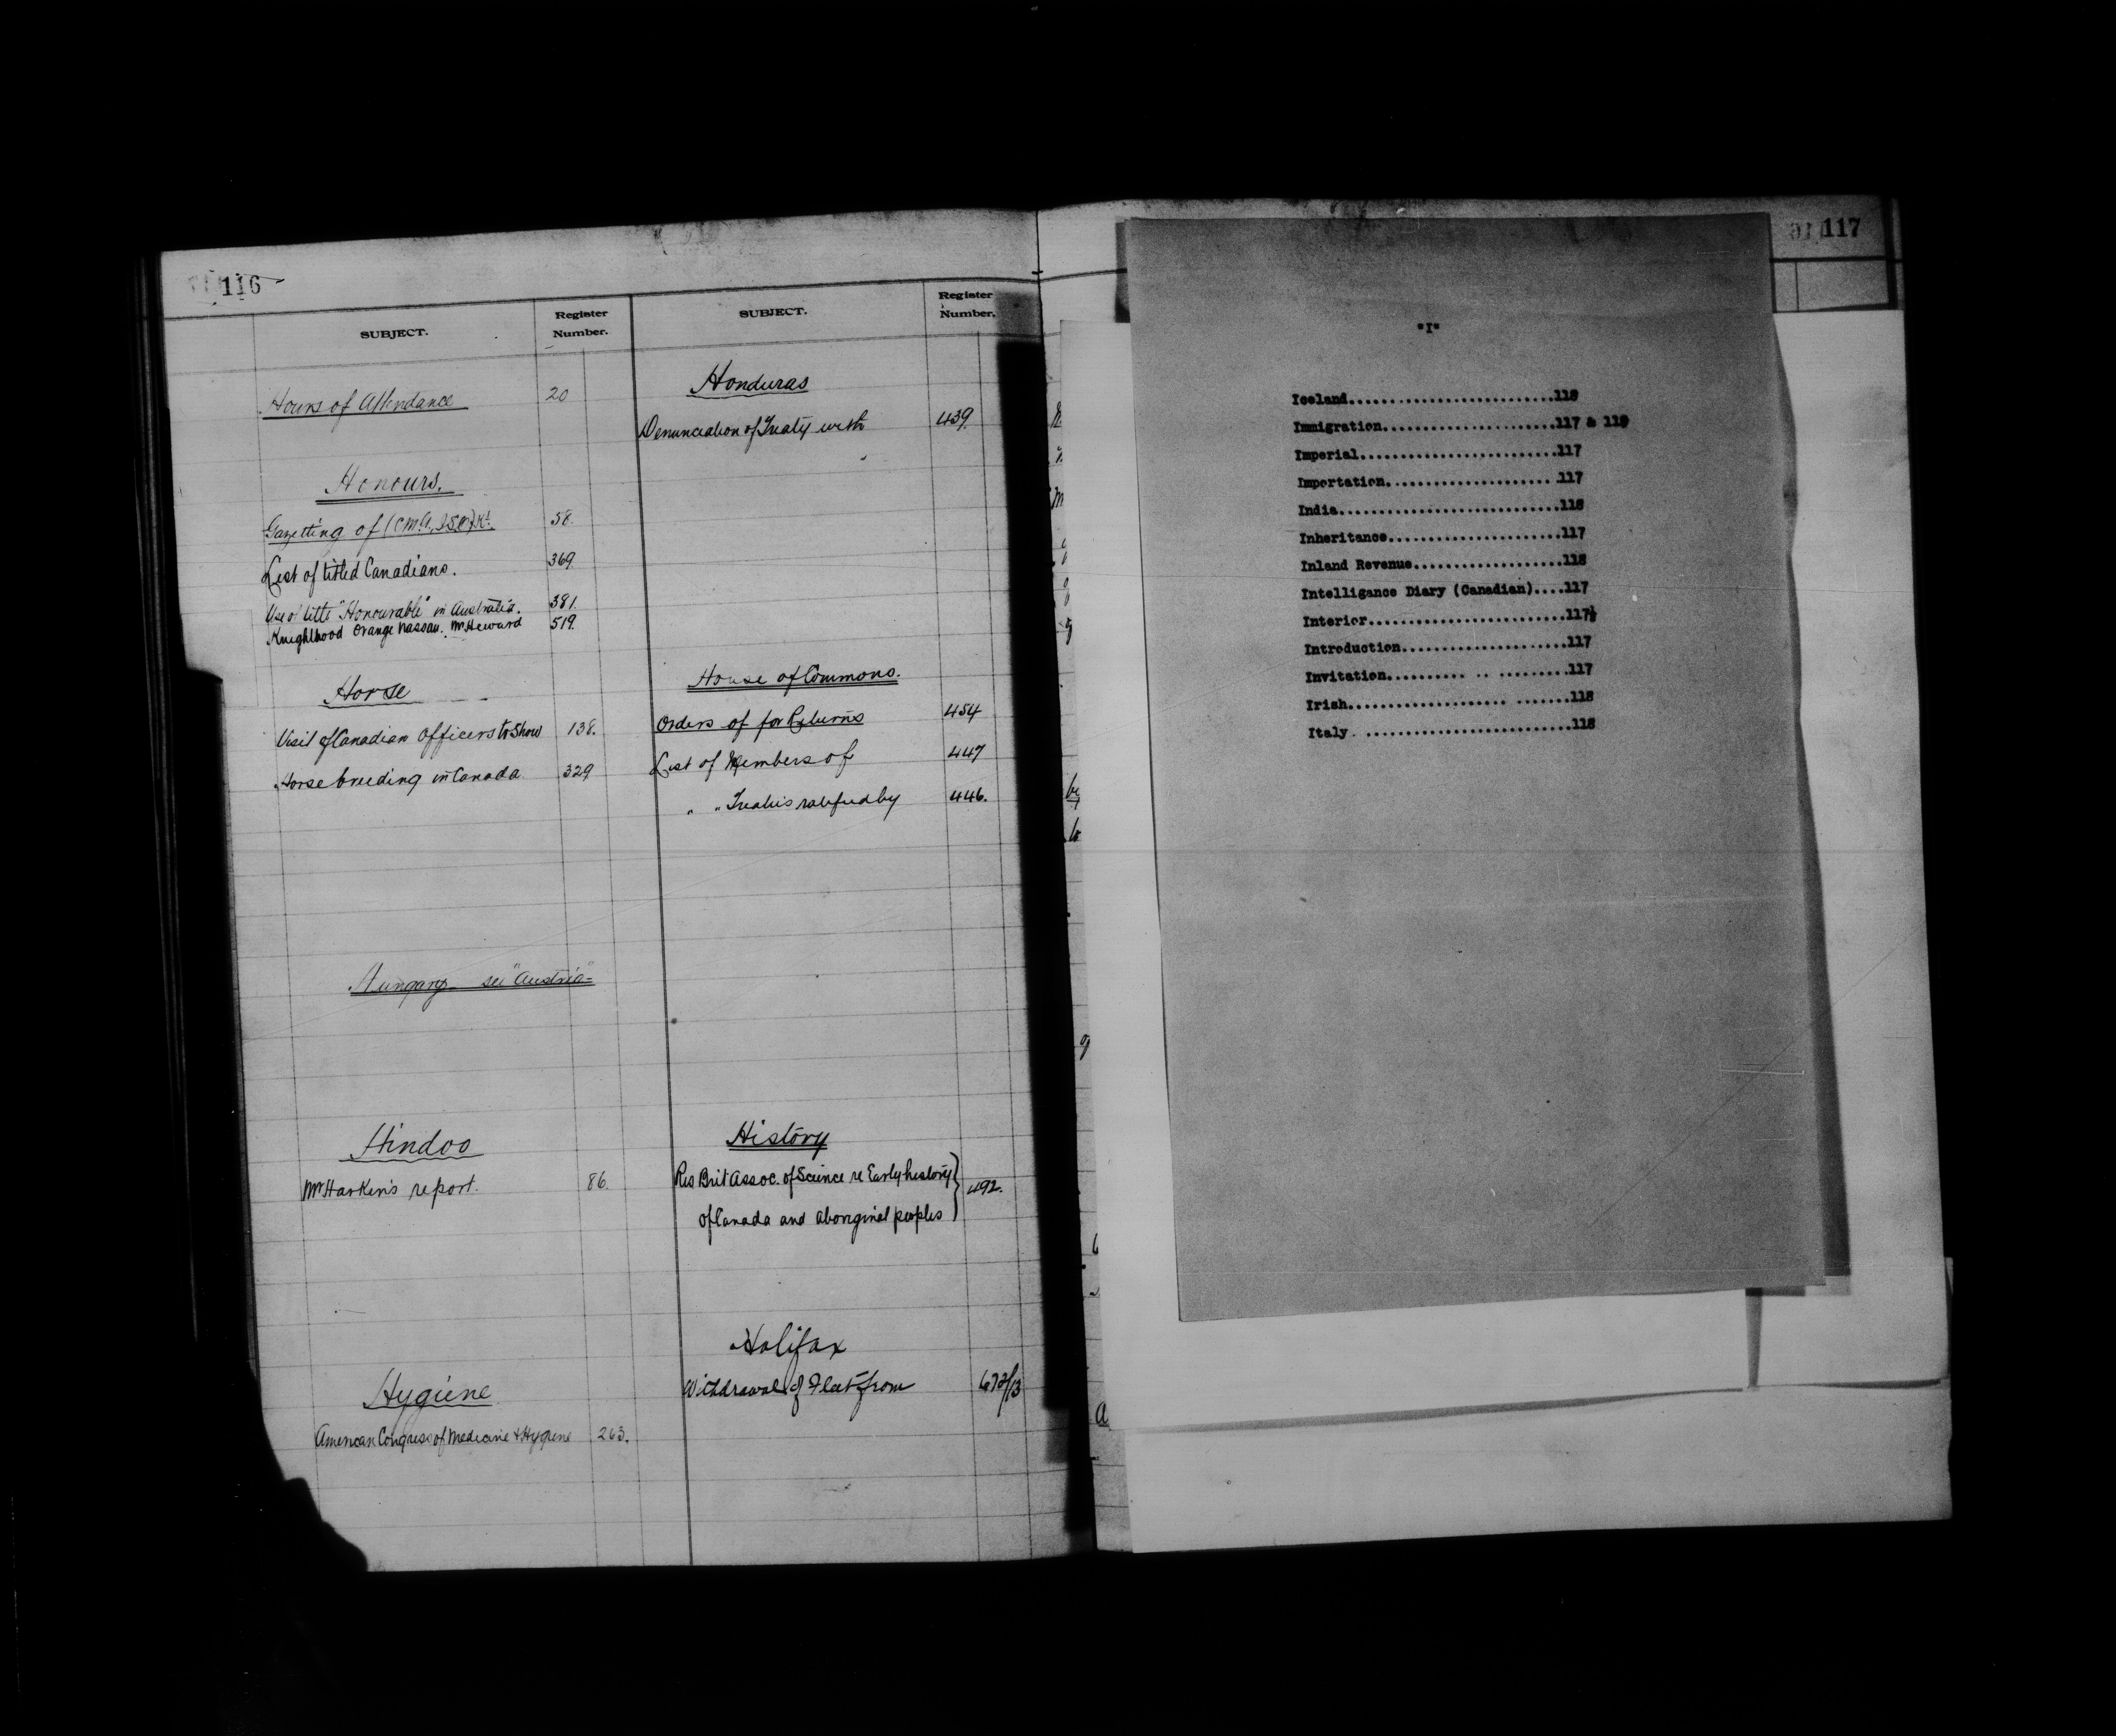 116
SUBJECT.
Register Number.
Hours of Attendance 20
Honours.
Gazetting of (C.M.G., I.S.O.) Kt. 58.
List of titled Canadians. 369.
Use of title "Honourable" in Australia. 381.
Knighthood Orange Nassau. Mr Heward 519.
Horse
Visit of Canadian Officers to Show 138.
Horse breeding in Canada. 329
Hungary see "Austria"
Hindoo
Mr Harkin's report. 86.
Hygiene
American Congress of Medicine & Hygiene 263.
SUBJECT.
Register Number.
Honduras
Denunciation of Treaty with 439.
House of Commons.
Orders of for Returns 454
List of Members of 447
" " Treaties ratified by 446.
History
Res Brit Assoc. of Science re Early history
of Canada and aboriginal peoples } 492.
Halifax
Withdrawal of Fleet from 672/13
117
"I"
Iceland..........................118
Immigration......................117 & 119
Imperial.........................117
Importation......................117
India............................118
Inheritance......................117
Inland Revenue...................118
Intelligance Diary (Canadian)....117
Interior.........................117½
Introduction.....................117
Invitation.......... .. .........117
Irish.................... .......118
Italy. ..........................118